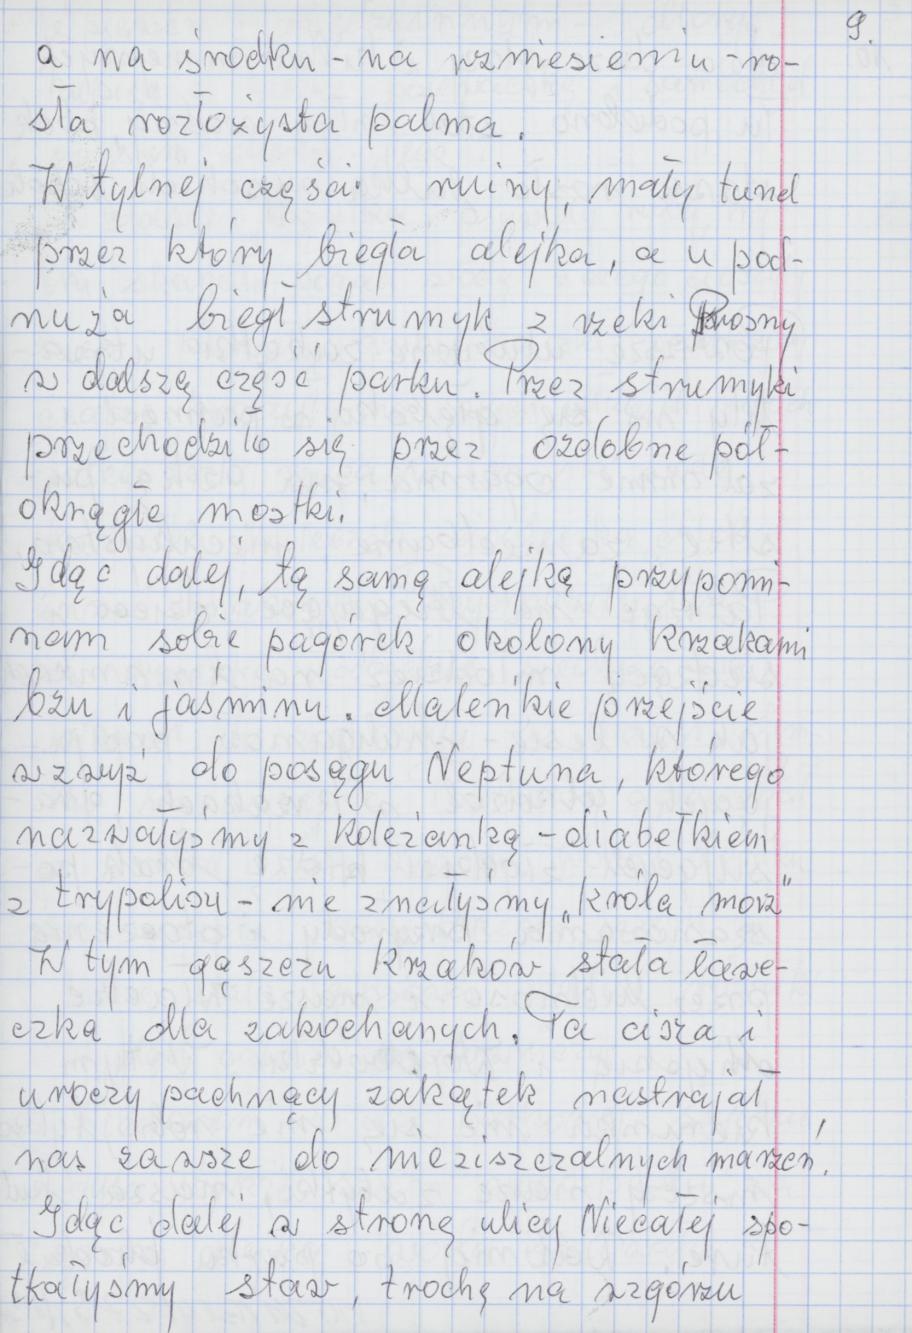 9.
a na środku - na wzniesieniu - ro-
sła rozłożysta palma.
W tylnej części ruiny, mały tunel
przez który biegła alejka, a u pod-
nuża biegł strumyk z rzeki Prosny
w dalszą część parku. Przez strumyki
przechodziło się przez ozdobne pół-
okrągłe mostki.
Idąc dalej, tą samą alejką przypomi-
nam sobie pagórek okolony krzakami
bzu i jaśminu. Maleńkie przejście
wzwyż do posągu Neptuna, którego
nazwałyśmy z koleżanką - diabełkiem
z trypolisu - nie znałyśmy „króla mórz"
W tym gąszczu krzaków stała ławe-
czka dla zakochanych. Ta cisza i
uroczy pachnący zakątek nastrajał
nas zawsze do nieziszczalnych marzeń.
Idąc dalej w stronę ulicy Niecałej spo-
tkałyśmy staw, trochę na wzgórzu